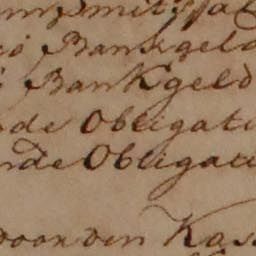 Bankgeld
Bankgeld
de Obligati
nde Obligati
door den Kas